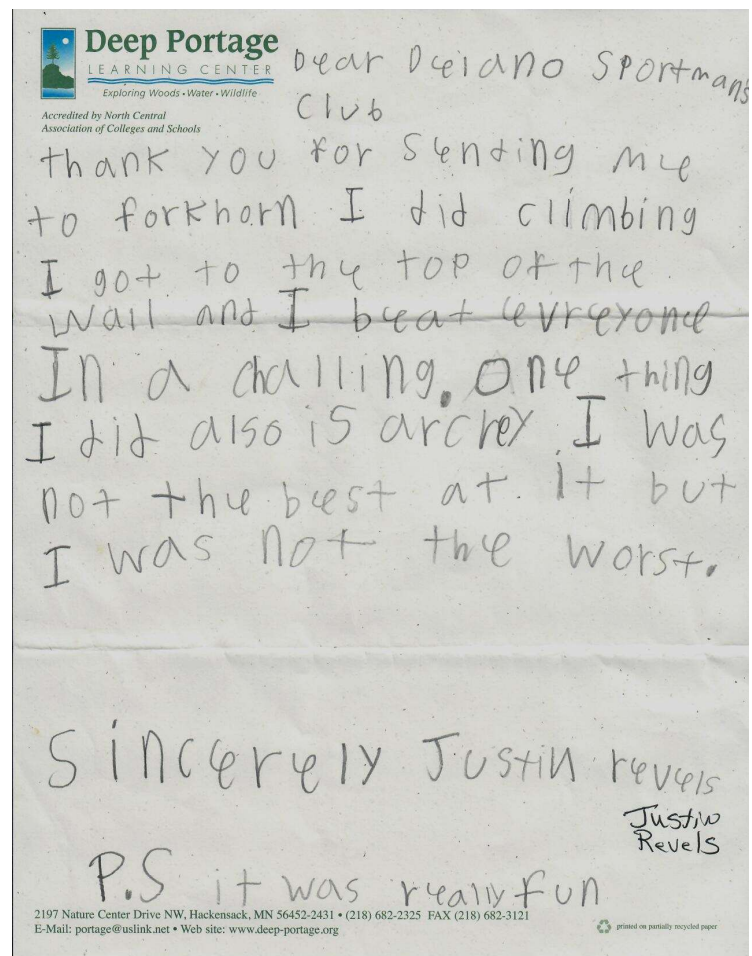 Deep Portage
LEARNING CENTER
Exploring Woods • Water • Wildlife
Accredited by North Central
Association of Colleges and Schools
Dear Deiano Sportman's
Club
thank you for sending me
to forkhorn I did climbing
I got to the top of the
wall and I beat evreyone
In a challing. One thing
I did also is archey. I was
not the best at it but
I was not the worst.
Sincerely Justin revels
Justin
Revels
P.S it was really fun
2197 Nature Center Drive NW, Hackensack, MN 56452-2431 • (218) 682-2325 FAX (218) 682-3121
E-Mail: portage@uslink.net • Web site: www.deep-portage.org
printed on partially recycled paper